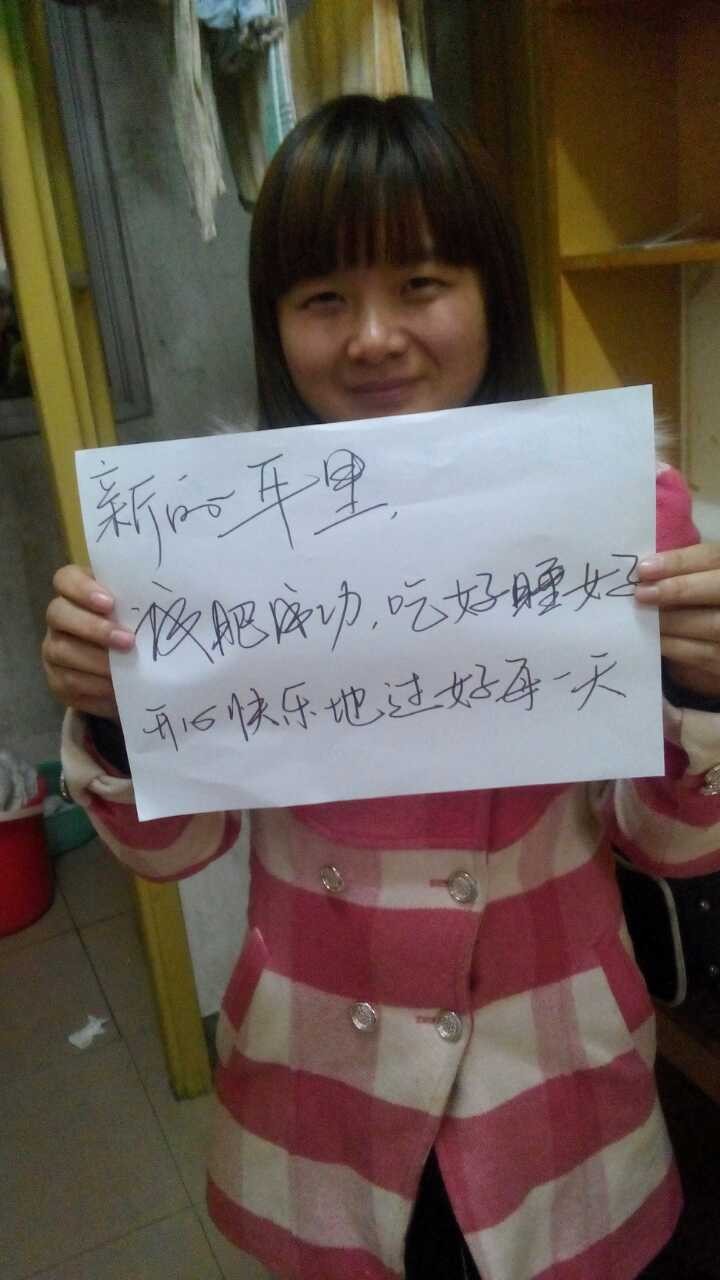 新的一年里,
减肥成功,吃好睡好
开心快乐地过好每一天